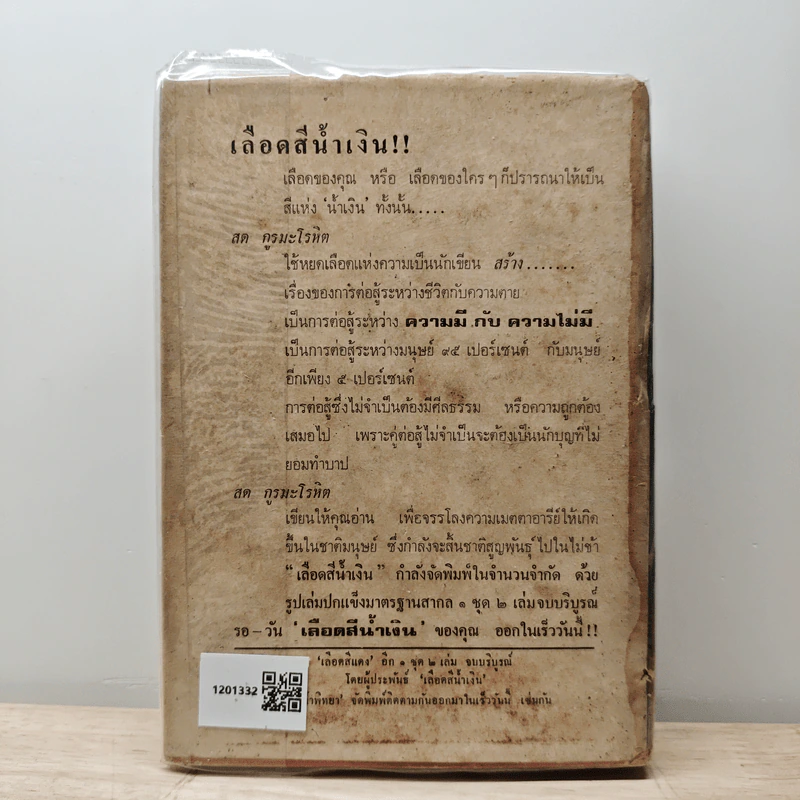 เลือดสีน้ำเงิน!!
เลือดของคุณ หรือ เลือดของใคร ๆ ก็ปรารถนาให้เป็น
สีแห่ง 'น้ำเงิน' ทั้งนั้น.....
สด กูรมะโรหิต
ใช้หยดเลือดแห่งความเป็นนักเขียน สร้าง.......
เรื่องของการต่อสู้ระหว่างชีวิตกับความตาย
เป็นการต่อสู้ระหว่าง ความมี กับ ความไม่มี
เป็นการต่อสู้ระหว่างมนุษย์ ๙๕ เปอร์เซนต์ กับมนุษย์
อีกเพียง ๕ เปอร์เซนต์
การต่อสู้ซึ่งไม่จำเป็นต้องมีศีลธรรม หรือความถูกต้อง
เสมอไป เพราะคู่ต่อสู้ไม่จำเป็นจะต้องเป็นนักบุญที่ไม่
ยอมทำบาป
สด กูรมะโรหิต
เขียนให้คุณอ่าน เพื่อจรรโลงความเมตตาอารีย์ให้เกิด
ขึ้นในชาติมนุษย์ ซึ่งกำลังจะสิ้นชาติสูญพันธุ์ไปในไม่ช้า
"เลือดสีน้ำเงิน" กำลังจัดพิมพ์ในจำนวนจำกัด ด้วย
รูปเล่มปกแข็งมาตรฐานสากล ๑ ชุด ๒ เล่มจบบริบูรณ์
รอ – วัน 'เลือดสีน้ำเงิน' ของคุณ ออกในเร็ววันนี้!!
'เลือดสีแดง' อีก ๑ ชุด ๒ เล่ม จบบริบูรณ์
โดยผู้ประพันธ์ 'เลือดสีน้ำเงิน'
จัดพิมพ์ติดตามกันออกมาในเร็ววันนี้ เช่นกัน
1201332